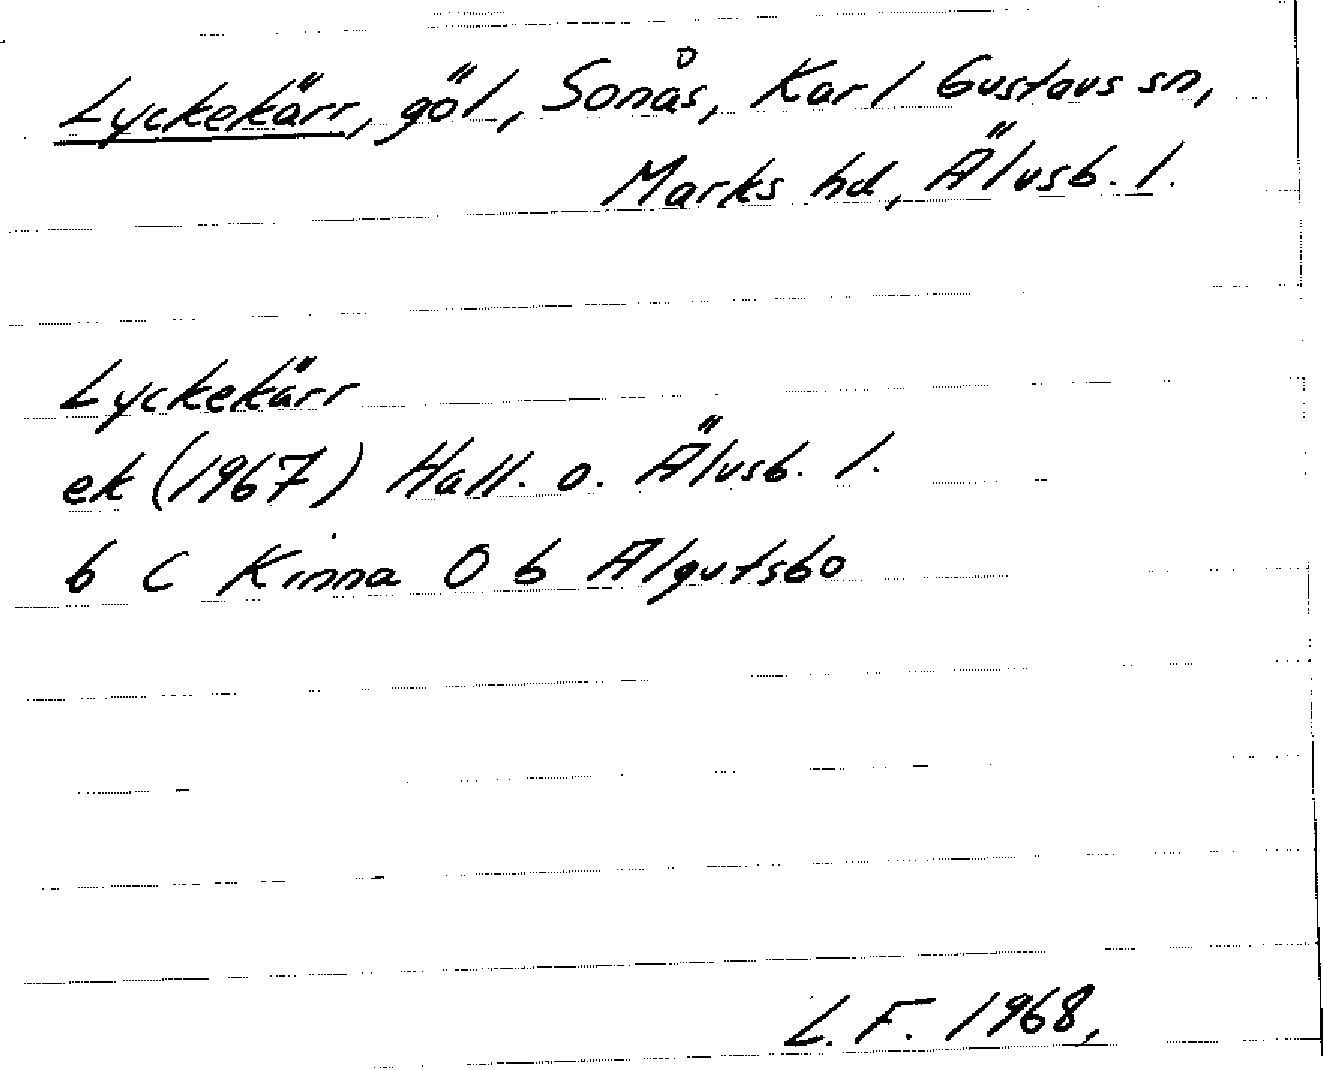 Lyckekärr, göl, Sonås, Karl Gustavs sn,
Marks hd, Älvsb. l.
Lyckekärr
ek (1967) Hall. o. Älvsb. l.
6 C Kinna O b Algutsbo
L. F. 1968,